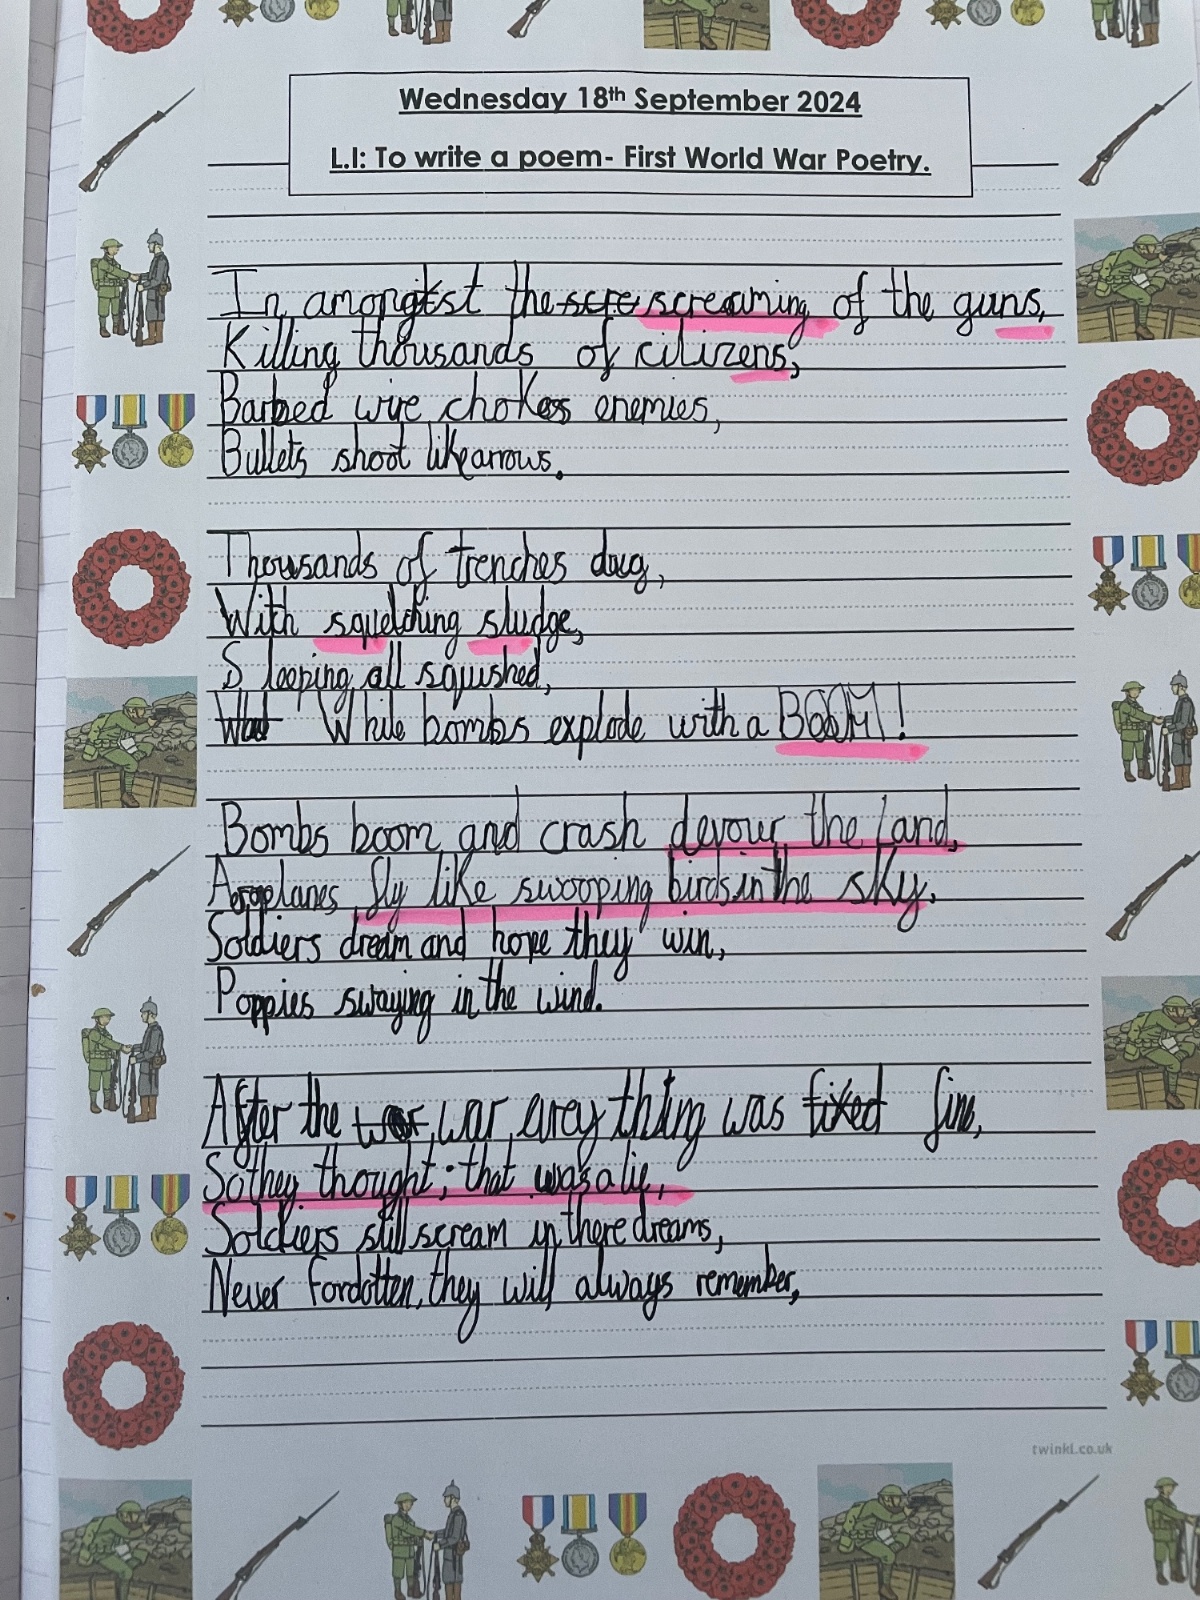 Wednesday 18th September 2024
L.I: To write a poem- First World War Poetry.
In amongst the scre screaming of the guns,
Killing thousands of citizens,
Barbed wire chokes enemies,
Bullets shoot like arrows.
Thousands of trenches dug,
With squelching sludge,
Sleeping all squished,
What While bombs explode with a BOOM!
Bombs boom and crash devour the land,
Aeroplanes fly like swooping birds in the sky.
Soldiers dream and hope they win,
Poppies swaying in the wind.
After the war, war, everything was fixed fine,
So they thought; that was a lie,
Soldiers still scream in there dreams,
Never fordotten, they will always remember,
twinkl.co.uk